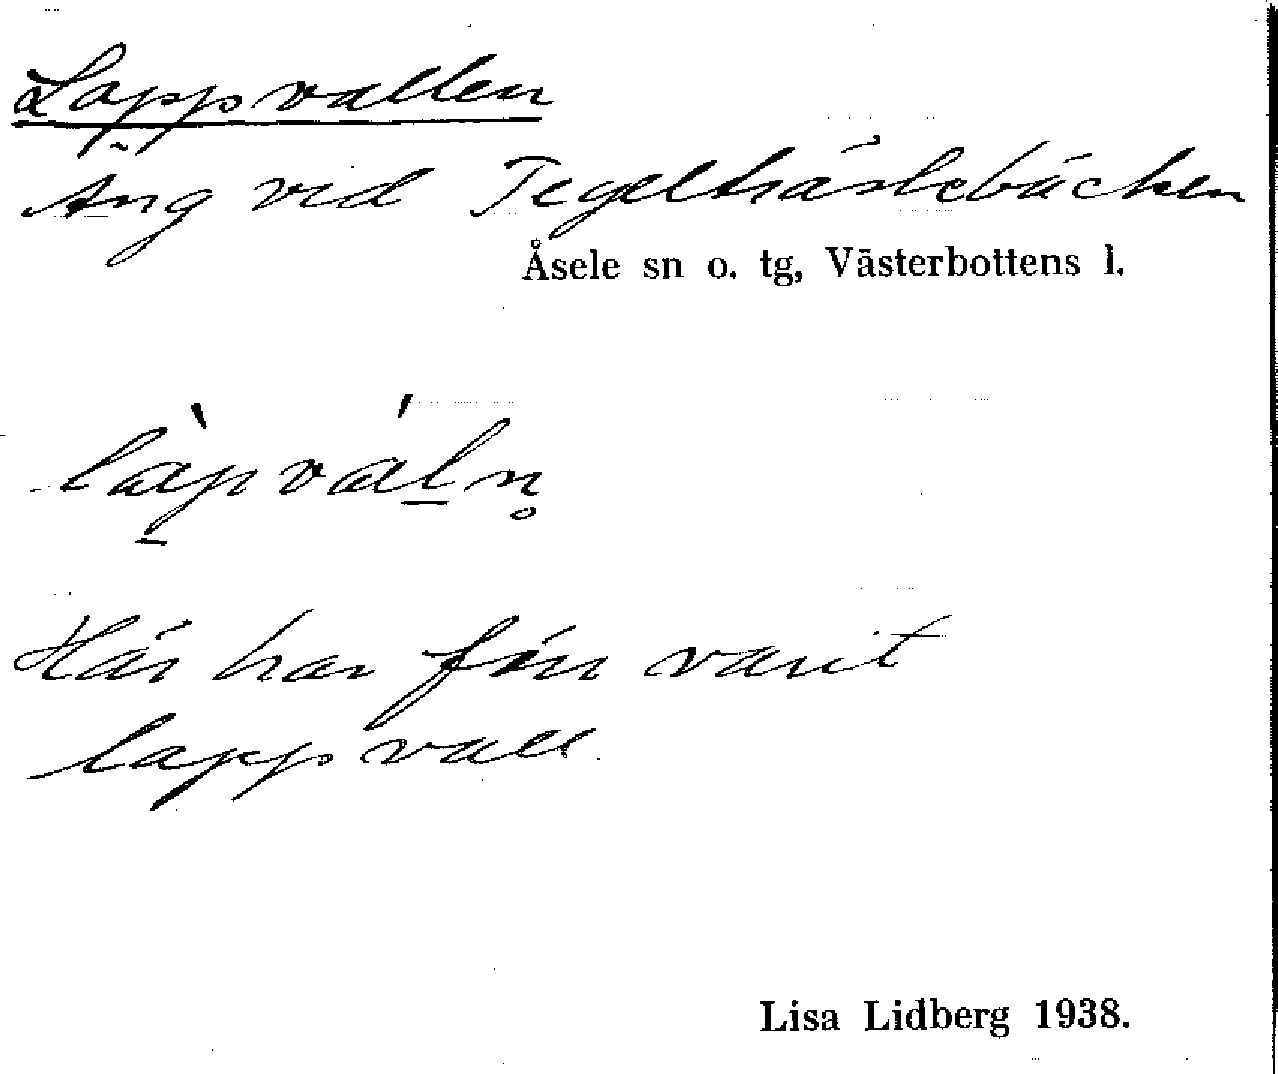 Lappvallen
Äng vid Tegelträskbäcken
Åsele sn o. tg, Västerbottens l.
Här har förr varit
lappvall.
Lisa Lidberg 1938.